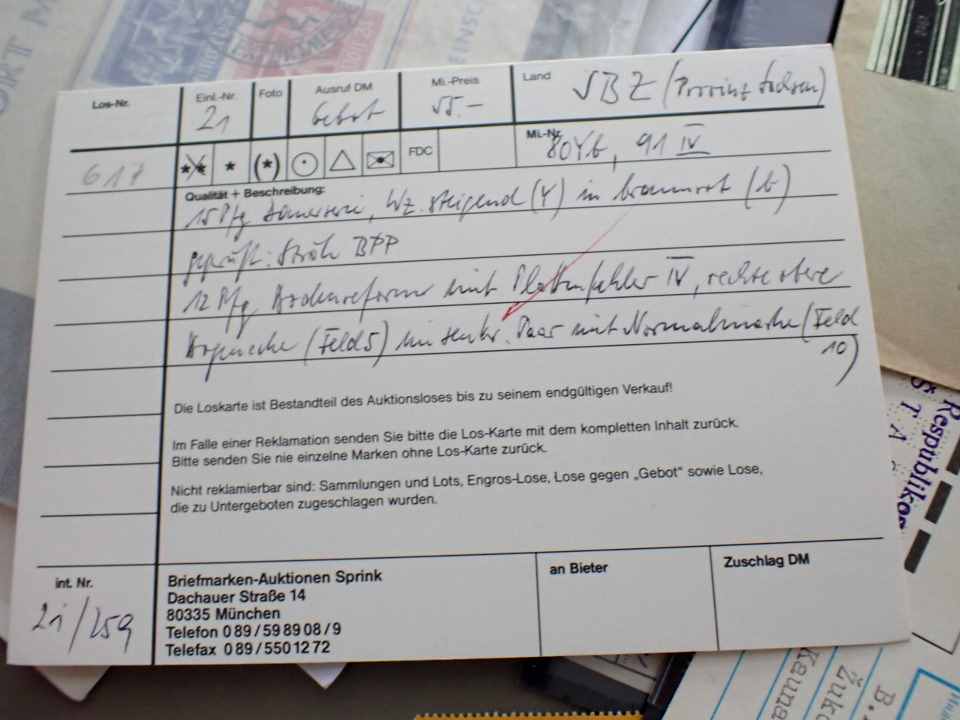 ORT M
EINSCH
Los-Nr.
Einl.-Nr.
21
Foto
Ausruf DM
Gebot
Mi.-Preis
55.-
Land
SBZ (Provinz Sachsen)
Mi.-Nr.
80Yb, 91 IV
617
** * (*) FDC
Qualität + Beschreibung:
15 Pfg , Wz. steigend (Y) in braunrot (b)
geprüft: Ströh BPP
12 Pfg Bodenreform mit Plattenfehler IV, rechte obere
(Feld 5) im senkr. Paar mit Normalmarke (Feld
10)
Die Loskarte ist Bestandteil des Auktionsloses bis zu seinem endgültigen Verkauf!
Im Falle einer Reklamation senden Sie bitte die Los-Karte mit dem kompletten Inhalt zurück.
Bitte senden Sie nie einzelne Marken ohne Los-Karte zurück.
Nicht reklamierbar sind: Sammlungen und Lots, Engros-Lose, Lose gegen „Gebot" sowie Lose,
die zu Untergeboten zugeschlagen wurden.
int. Nr.
21/259
Briefmarken-Auktionen Sprink
Dachauer Straße 14
80335 München
Telefon 0 89 / 59 89 08 / 9
Telefax 0 89 / 550 12 72
an Bieter
Zuschlag DM
Respublikos
S T A
B.
Žuk
Kauna